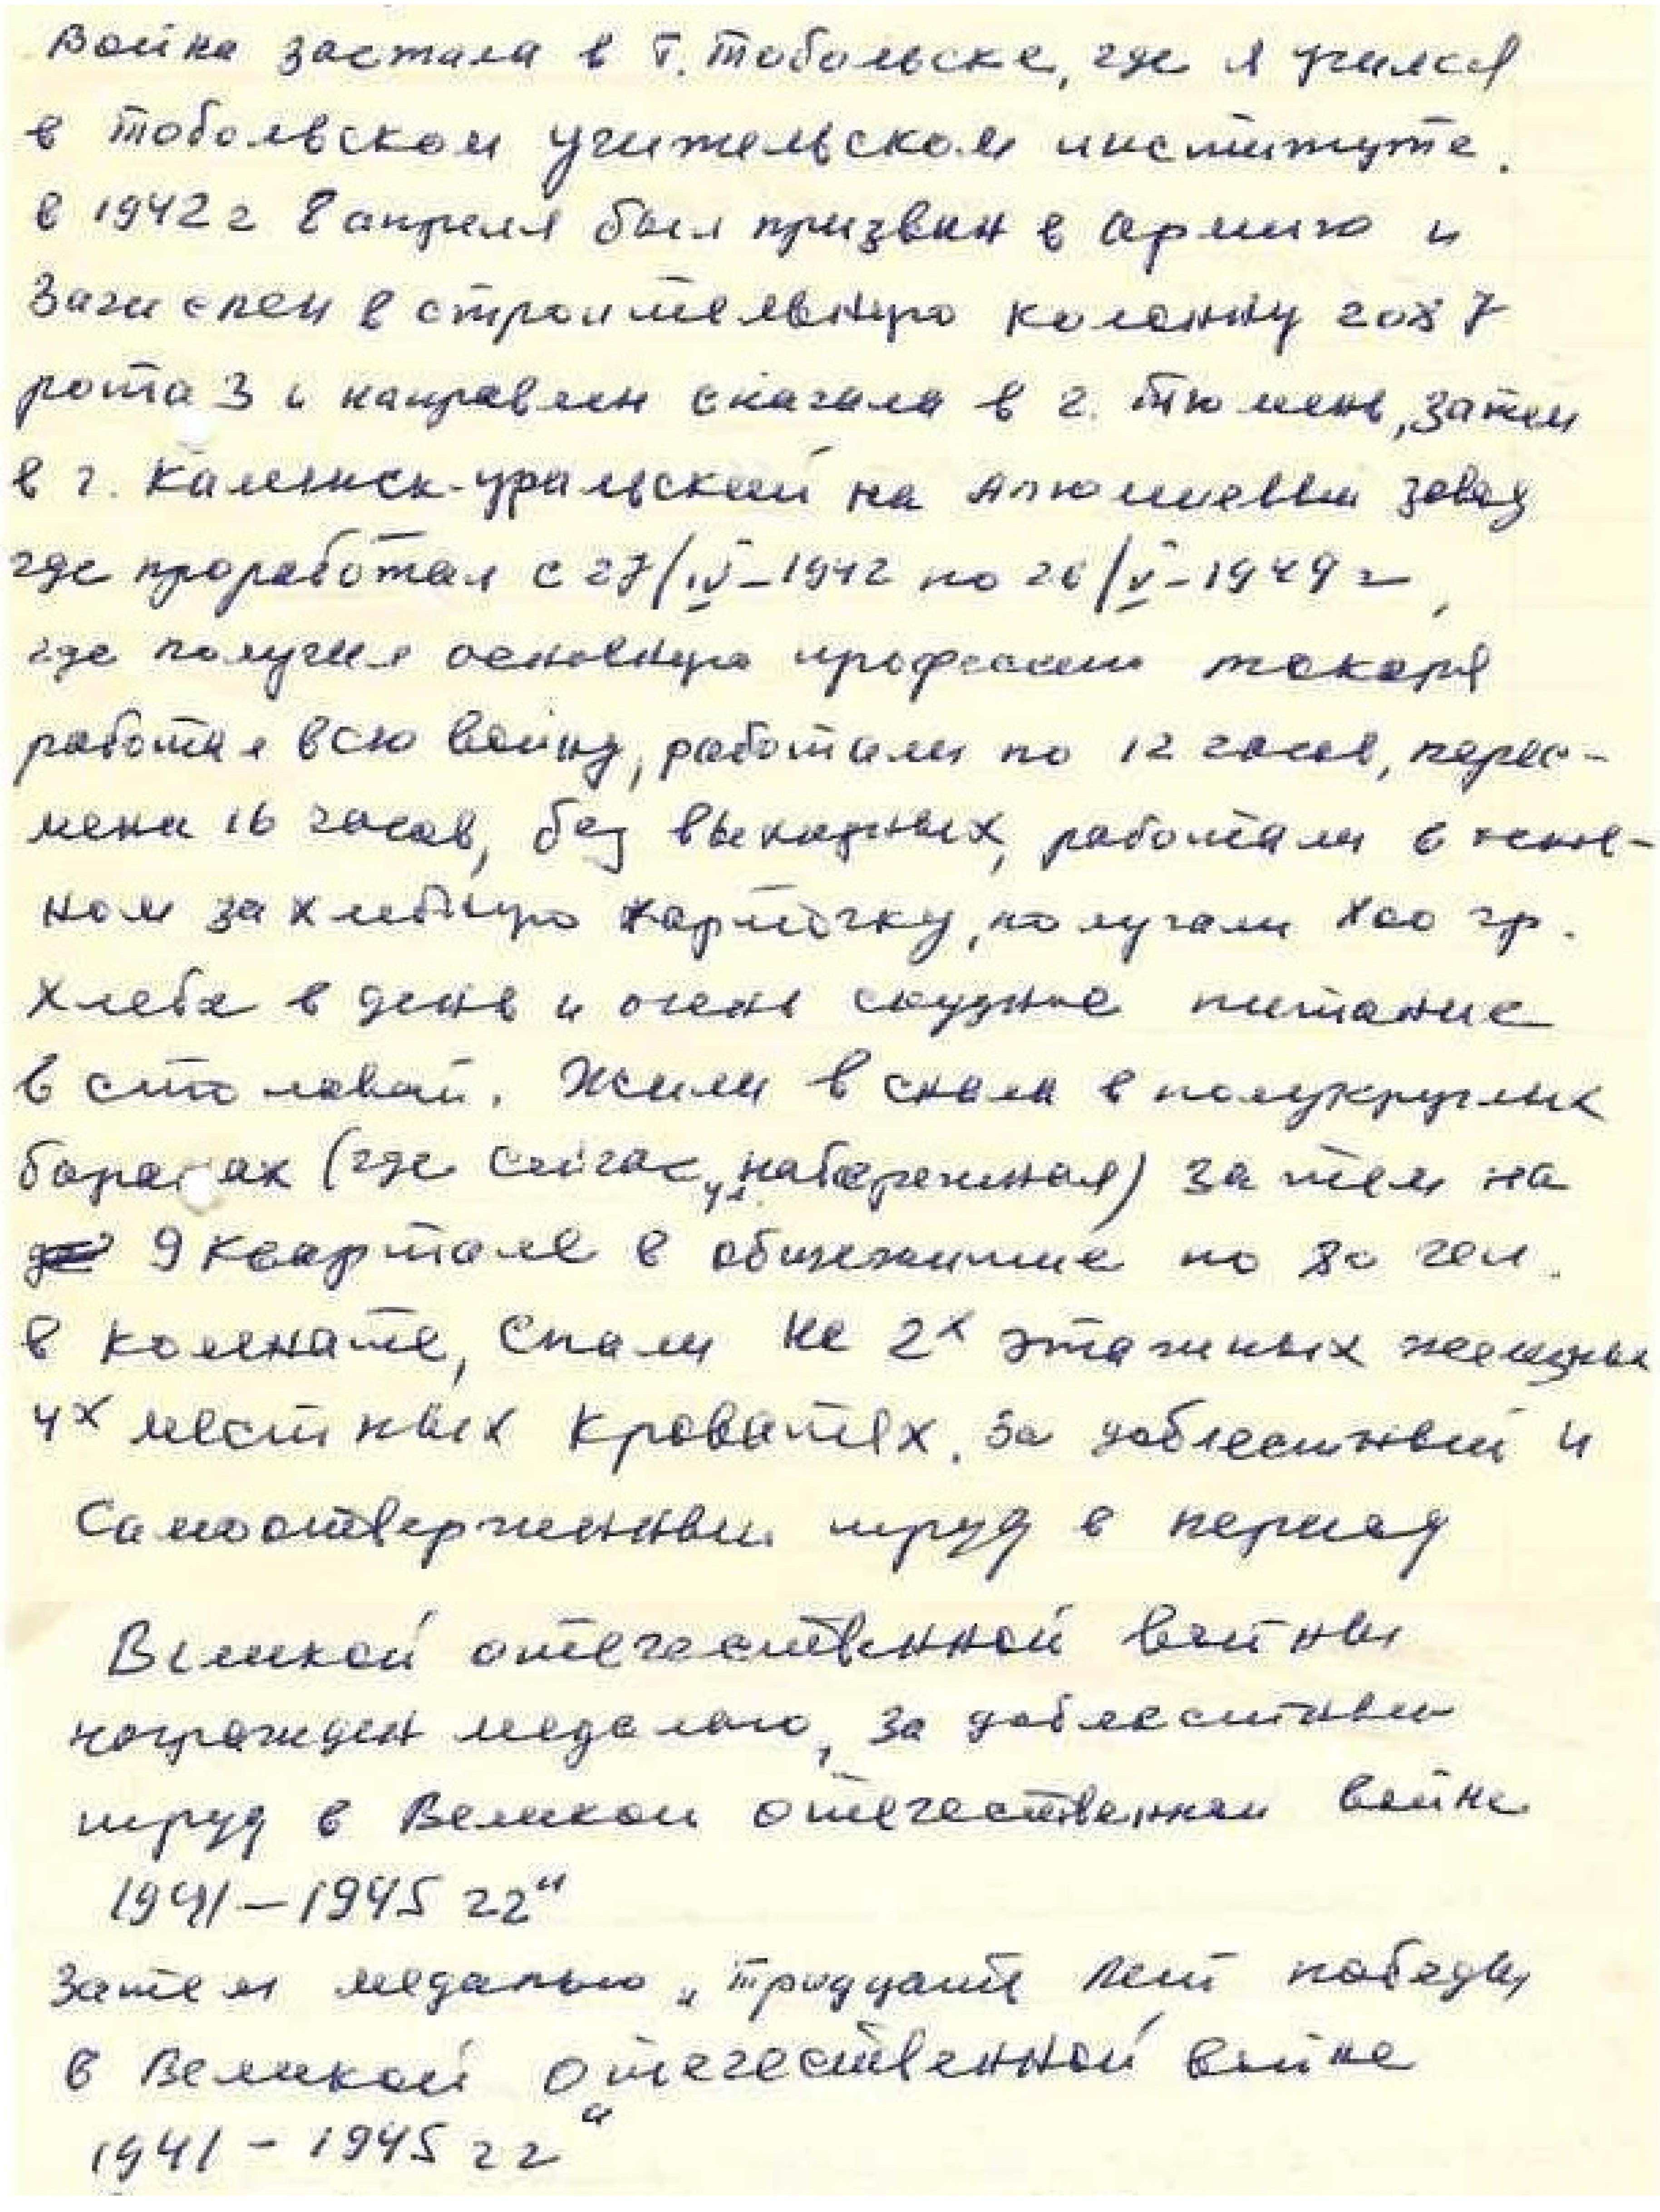 Война застала в г. Тобольске, где я учился
в Тобольском учительском институте.
в 1942 г 8 апреля был призван в армию и
Зачислен в строительную колонну
рота 3 и направлен сначала в г. Тюмень, затем
в г. Каменск-уральский на Алюминевый завод
где проработал с 27/IV-1942 по 26/V-1949 г,
где получил основную профессию токаря
работал всю войну, работали по 12 часов, перес-
мена 16 часов, без выходных, работали в
ном за хлебную карточку, получали гр.
Хлеба в день и очень скудное питание
в столовой. Жили в начале в полукруглых
бараках (где сейчас „набережная) затем на
9 квартале в общежитие по 80 чел.
в комнате, Спали на 2х этажных железных
4х местных кроватях. За доблестный и
Самоотверженный труд в период
Великой отечественной войны
награжден медалью „За доблестный
труд в Великой отечественной войне
1941 – 1945 гг"
Затем медалью „Тридцать лет победы
в Великой Отечественной войне
1941 – 1945 гг"